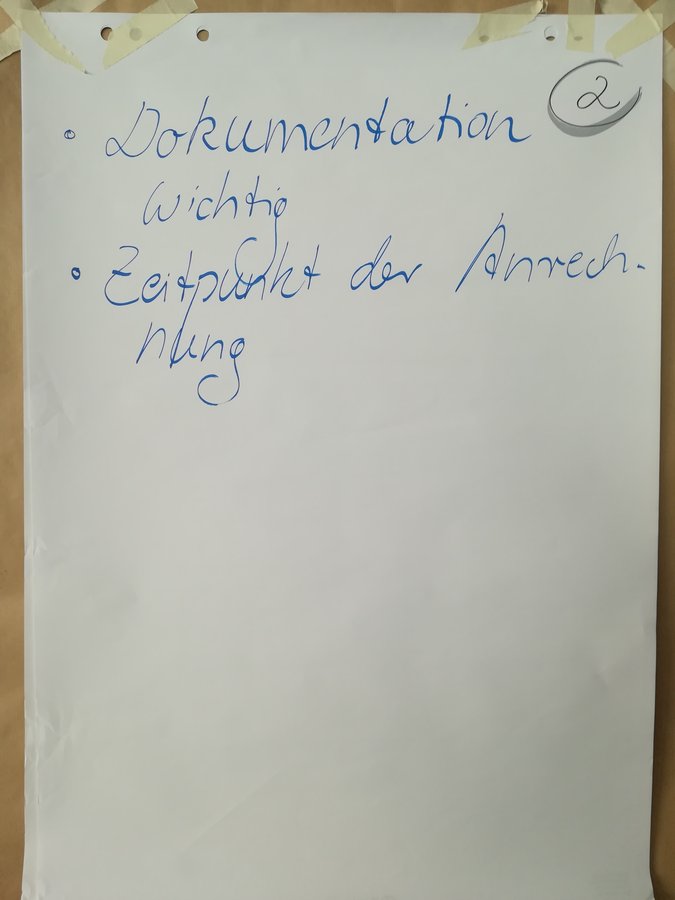 2
• Dokumentation
wichtig
• Zeitpunkt der Anrech-
nung